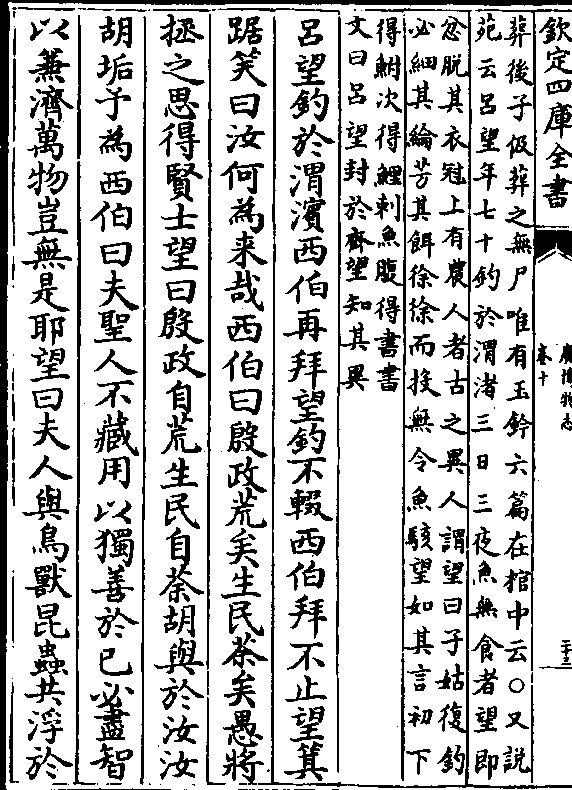 欽定四庫全書
廣博物志
卷十
二十三
葬後子伋葬之無尸唯有玉鈐六篇在棺中云○又説
苑云呂望年七十釣於渭渚三日三夜魚無食者望即
忿脱其衣冠上有農人者古之異人謂望曰子姑復釣
必細其綸芳其餌徐徐而投無令魚駭望如其言初下
得鮒次得鯉刺魚腹得書書
文曰呂望封於齊望知其異
呂望釣於渭濱西伯再拜望釣不輟西伯拜不止望箕
踞笑曰汝何為来哉西伯曰殷政荒矣生民荼矣愚將
拯之思得賢士望曰殷政自荒生民自荼胡與於汝汝
胡垢予為西伯曰夫聖人不藏用以獨善於已必盡智
以兼濟萬物豈無是耶望曰夫人與鳥獸昆蟲共浮於